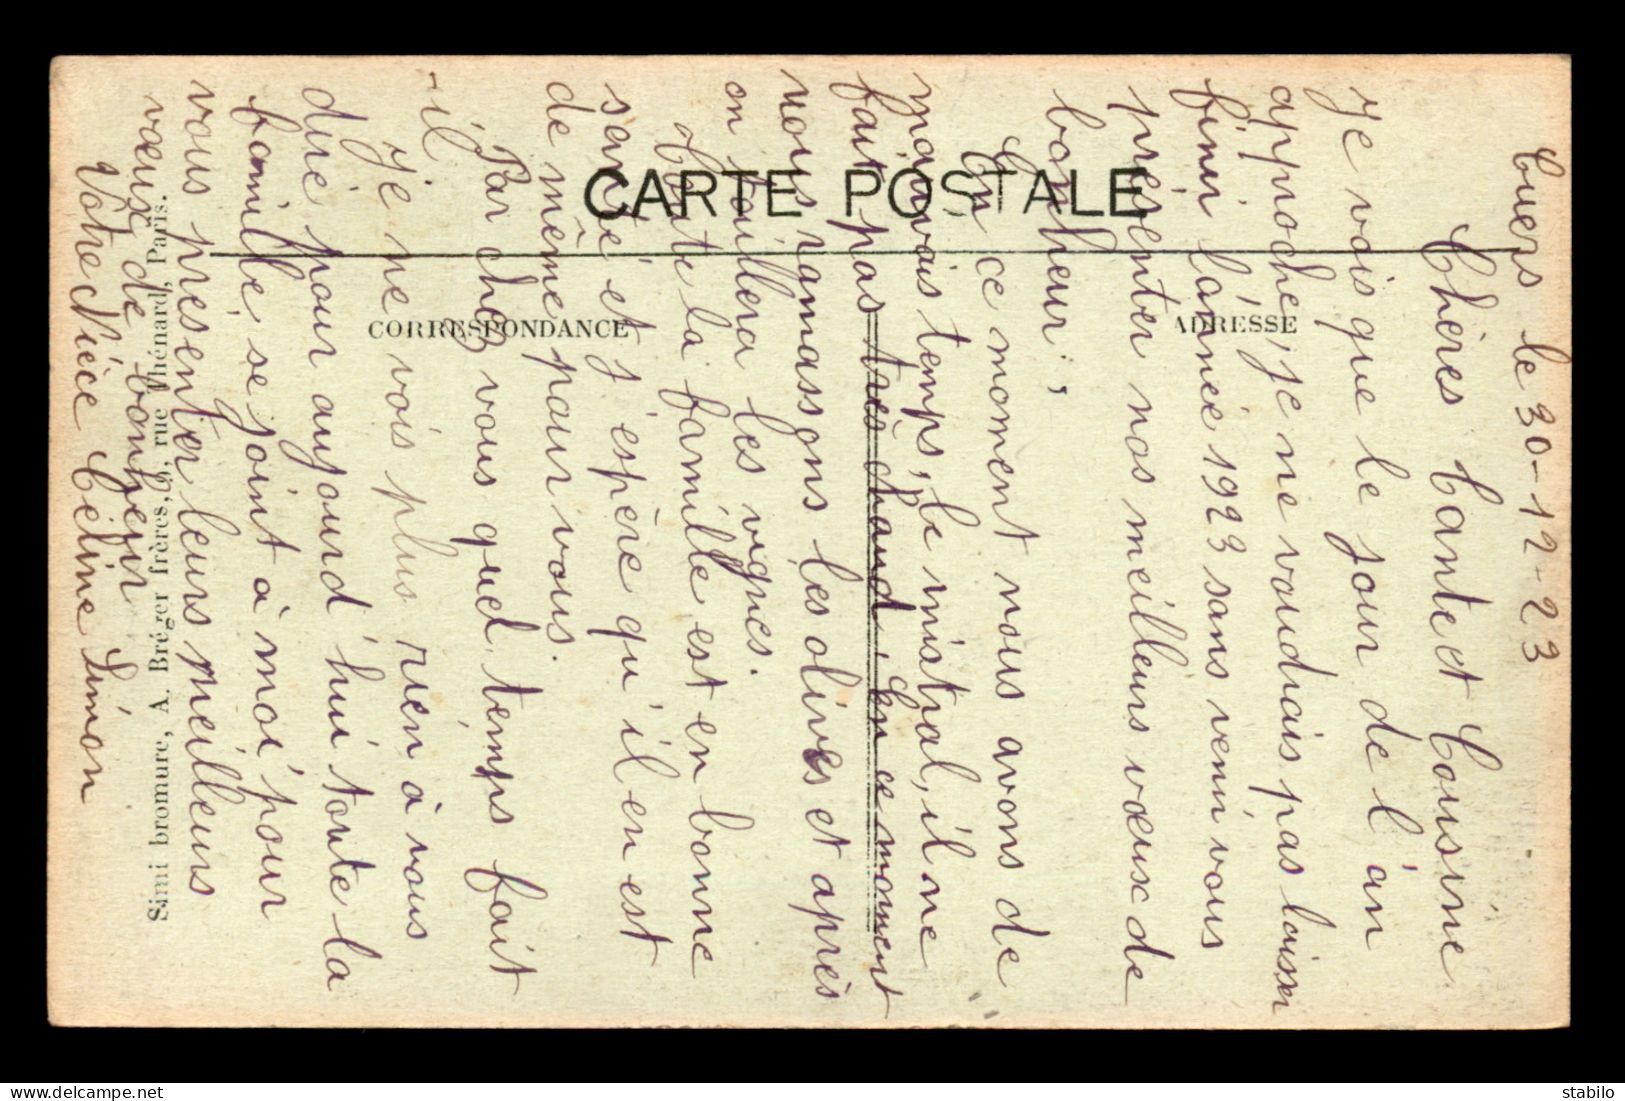 CARTE POSTALE
CORRESPONDANCE
ADRESSE
Simi bromure, A. Bréger frères, rue Thénard, Paris.
Cuers le 30-12-23
Chères Tante et Cousine
Je vois que le jour de l'an
approche, je ne voudrais pas laisser
finir l'année 1923 sans venir vous
présenter nos meilleurs vœux de
bonheur,
En ce moment nous avons de
mauvais temps, le mistral, il ne
fait pas très chaud. En ce moment
nous ramassons les olives et après
on taillera les vignes.
Toute la famille est en bonne
santé et j'espère qu'il en est
de même pour vous.
Par chez vous quel temps fait
-il
Je ne vois plus rien à vous
dire pour aujourd'hui toute la
famille se joint à moi pour
vous présenter leurs meilleurs
vœux de bonheur
Votre Nièce Céline Simon
stabilo